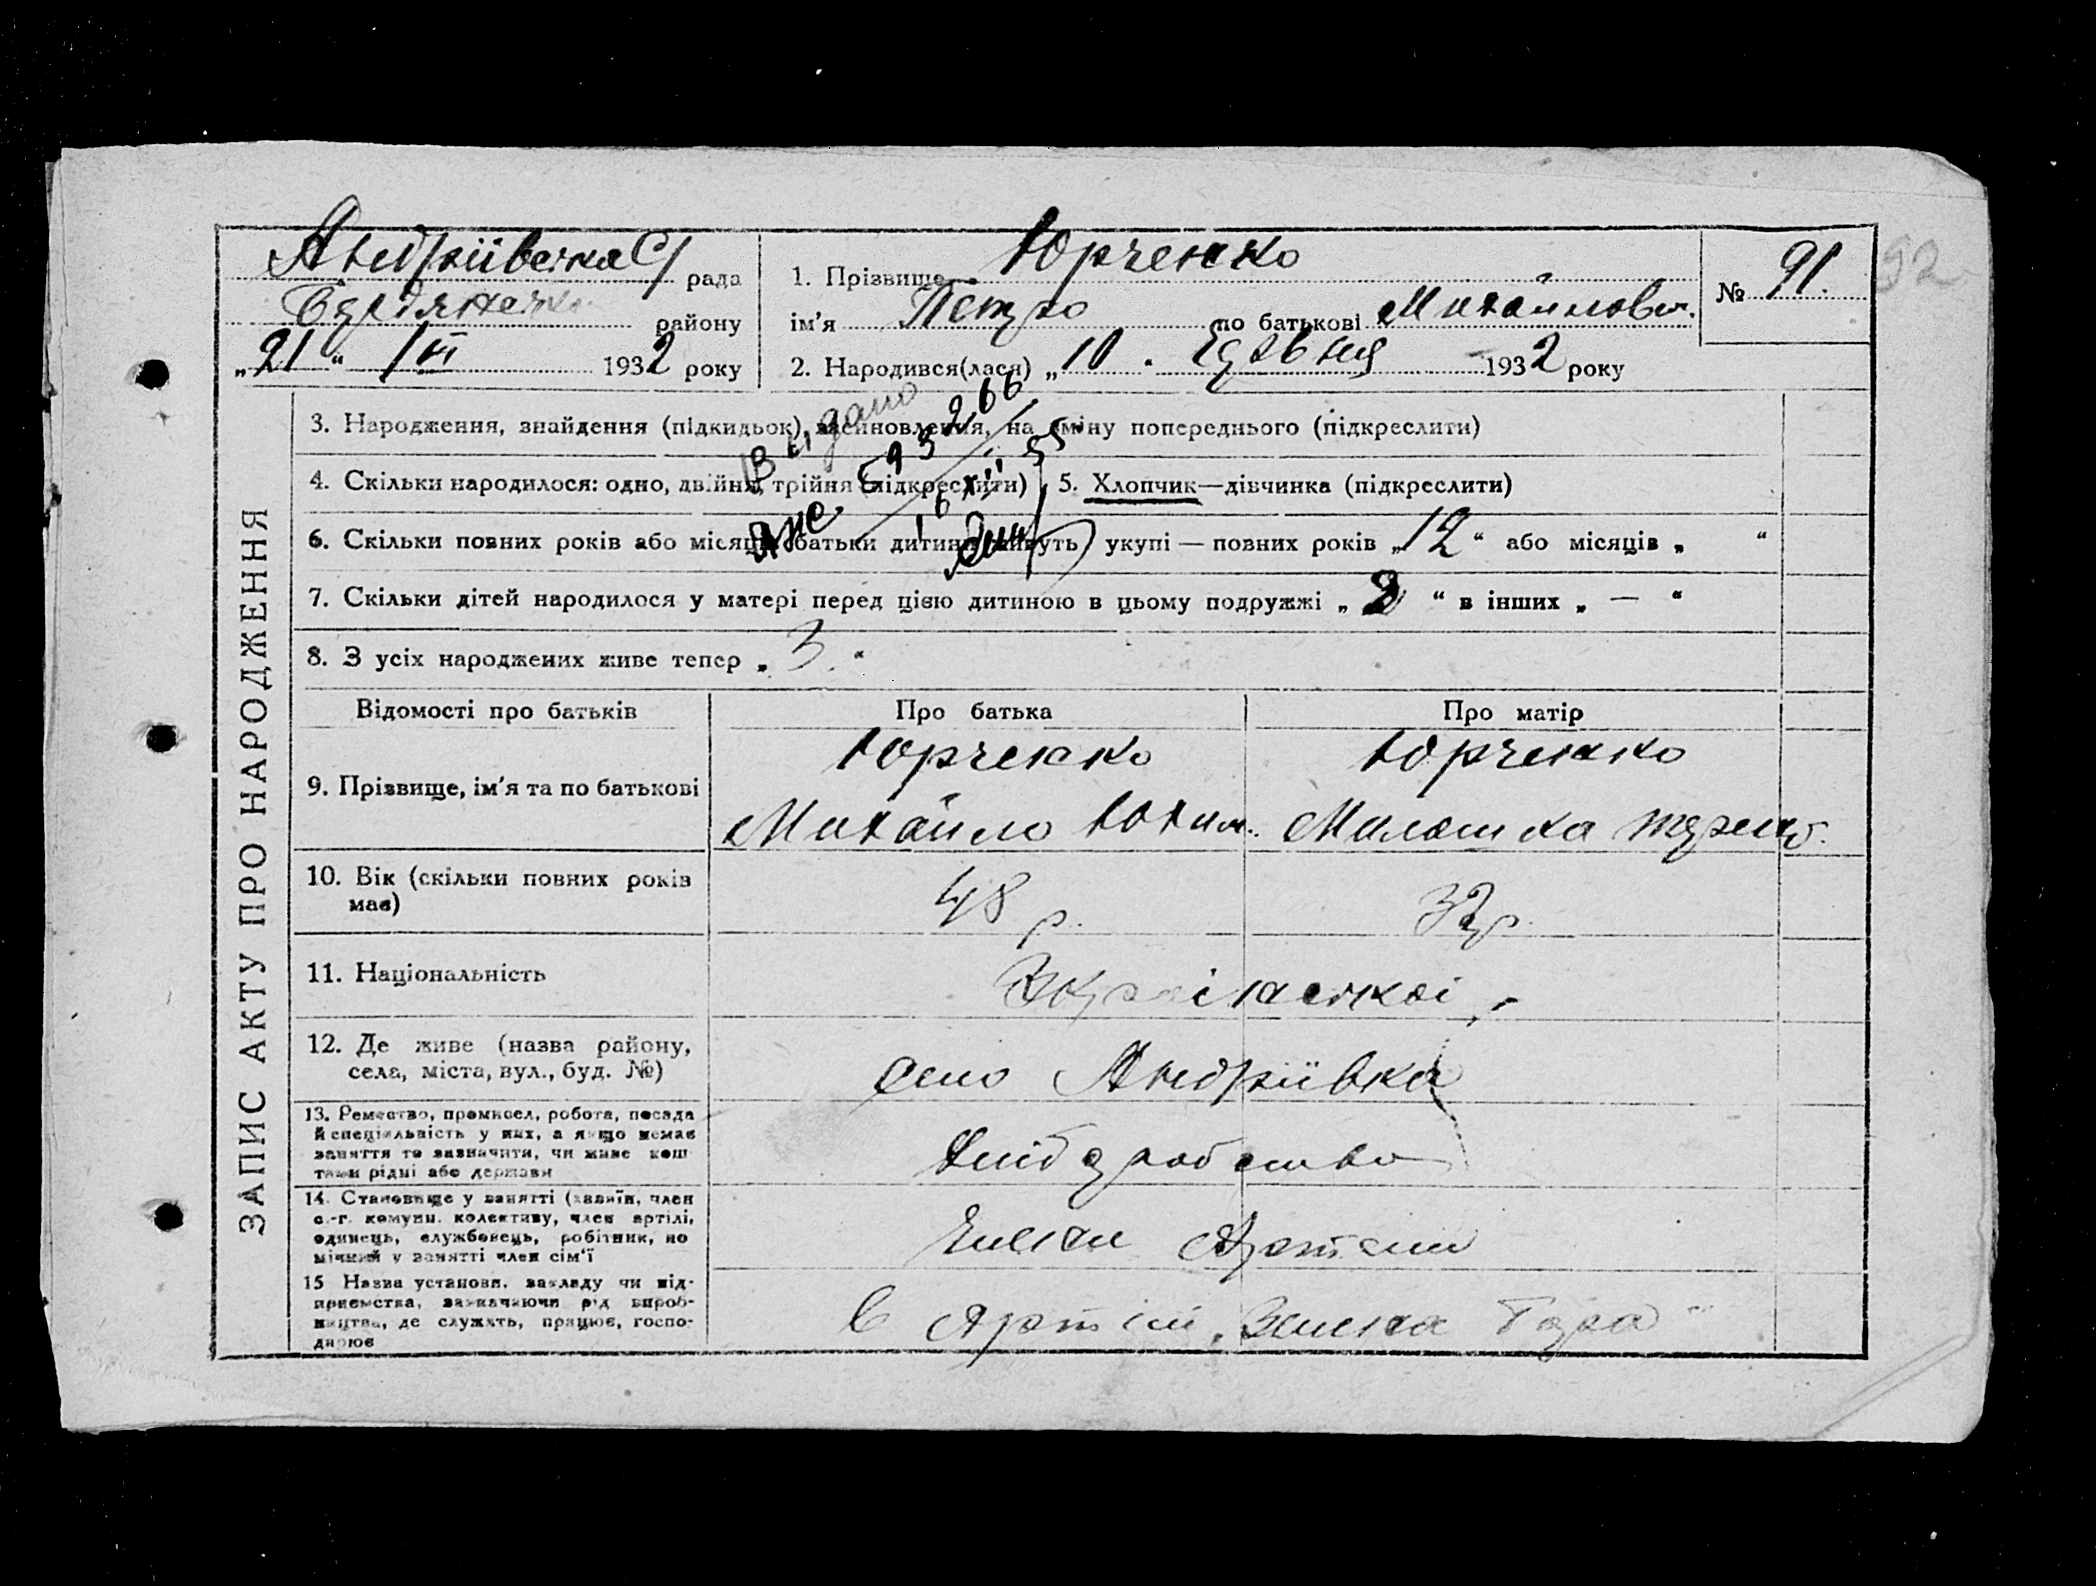 Андріївська С/ рада
Бердянська району
„21“ VII 1932 року
1. Прізвище Юрченко
ім'я Петро по батькові Михайлов.
2. Народився(лася) „10“ 1932 року
№ 91.
92
ЗАПИС АКТУ ПРО НАРОДЖЕННЯ
3. Народження, знайдення (підкидьок), всиновлення, на зміну попереднього (підкреслити)
Видано
4. Скільки народилося: одно, двійня, трійня (підкреслити) 5. Хлопчик—дівчинка (підкреслити)
6. Скільки повних років або місяців батьки дитини живуть укупі — повних років „12“ або місяців „ “
7. Скільки дітей народилося у матері перед цією дитиною в цьому подружжі „ “ в інших „ — “
8. З усіх народжених живе тепер „3.“
Відомості про батьків Про батька Про матір
9. Прізвище, ім'я та по батькові
Юрченко
Михайло Юхим.
Юрченко
10. Вік (скільки повних років має)
48 р.
32 р.
11. Національність
Українській
12. Де живе (назва району, села, міста, вул., буд. №)
село Андріївка
13. Ремество, промисел, робота, посада
й спеціяльність у них, а якщо немає
заняття то зазначити, чи живе кош-
тами рідні або держави
хлібробство
14. Становище у занятті (хазяїн, член
с.-г. комуни, колективу, член артілі,
одинець, службовець, робітник, по
мічний у занятті член сім'ї
Члени Артєлі
15 Назва установи, закладу чи під-
приємства, зазначаючи рід вироб-
ництва, де служать, працює, госпо-
дарює
в Артілі „ Гора“